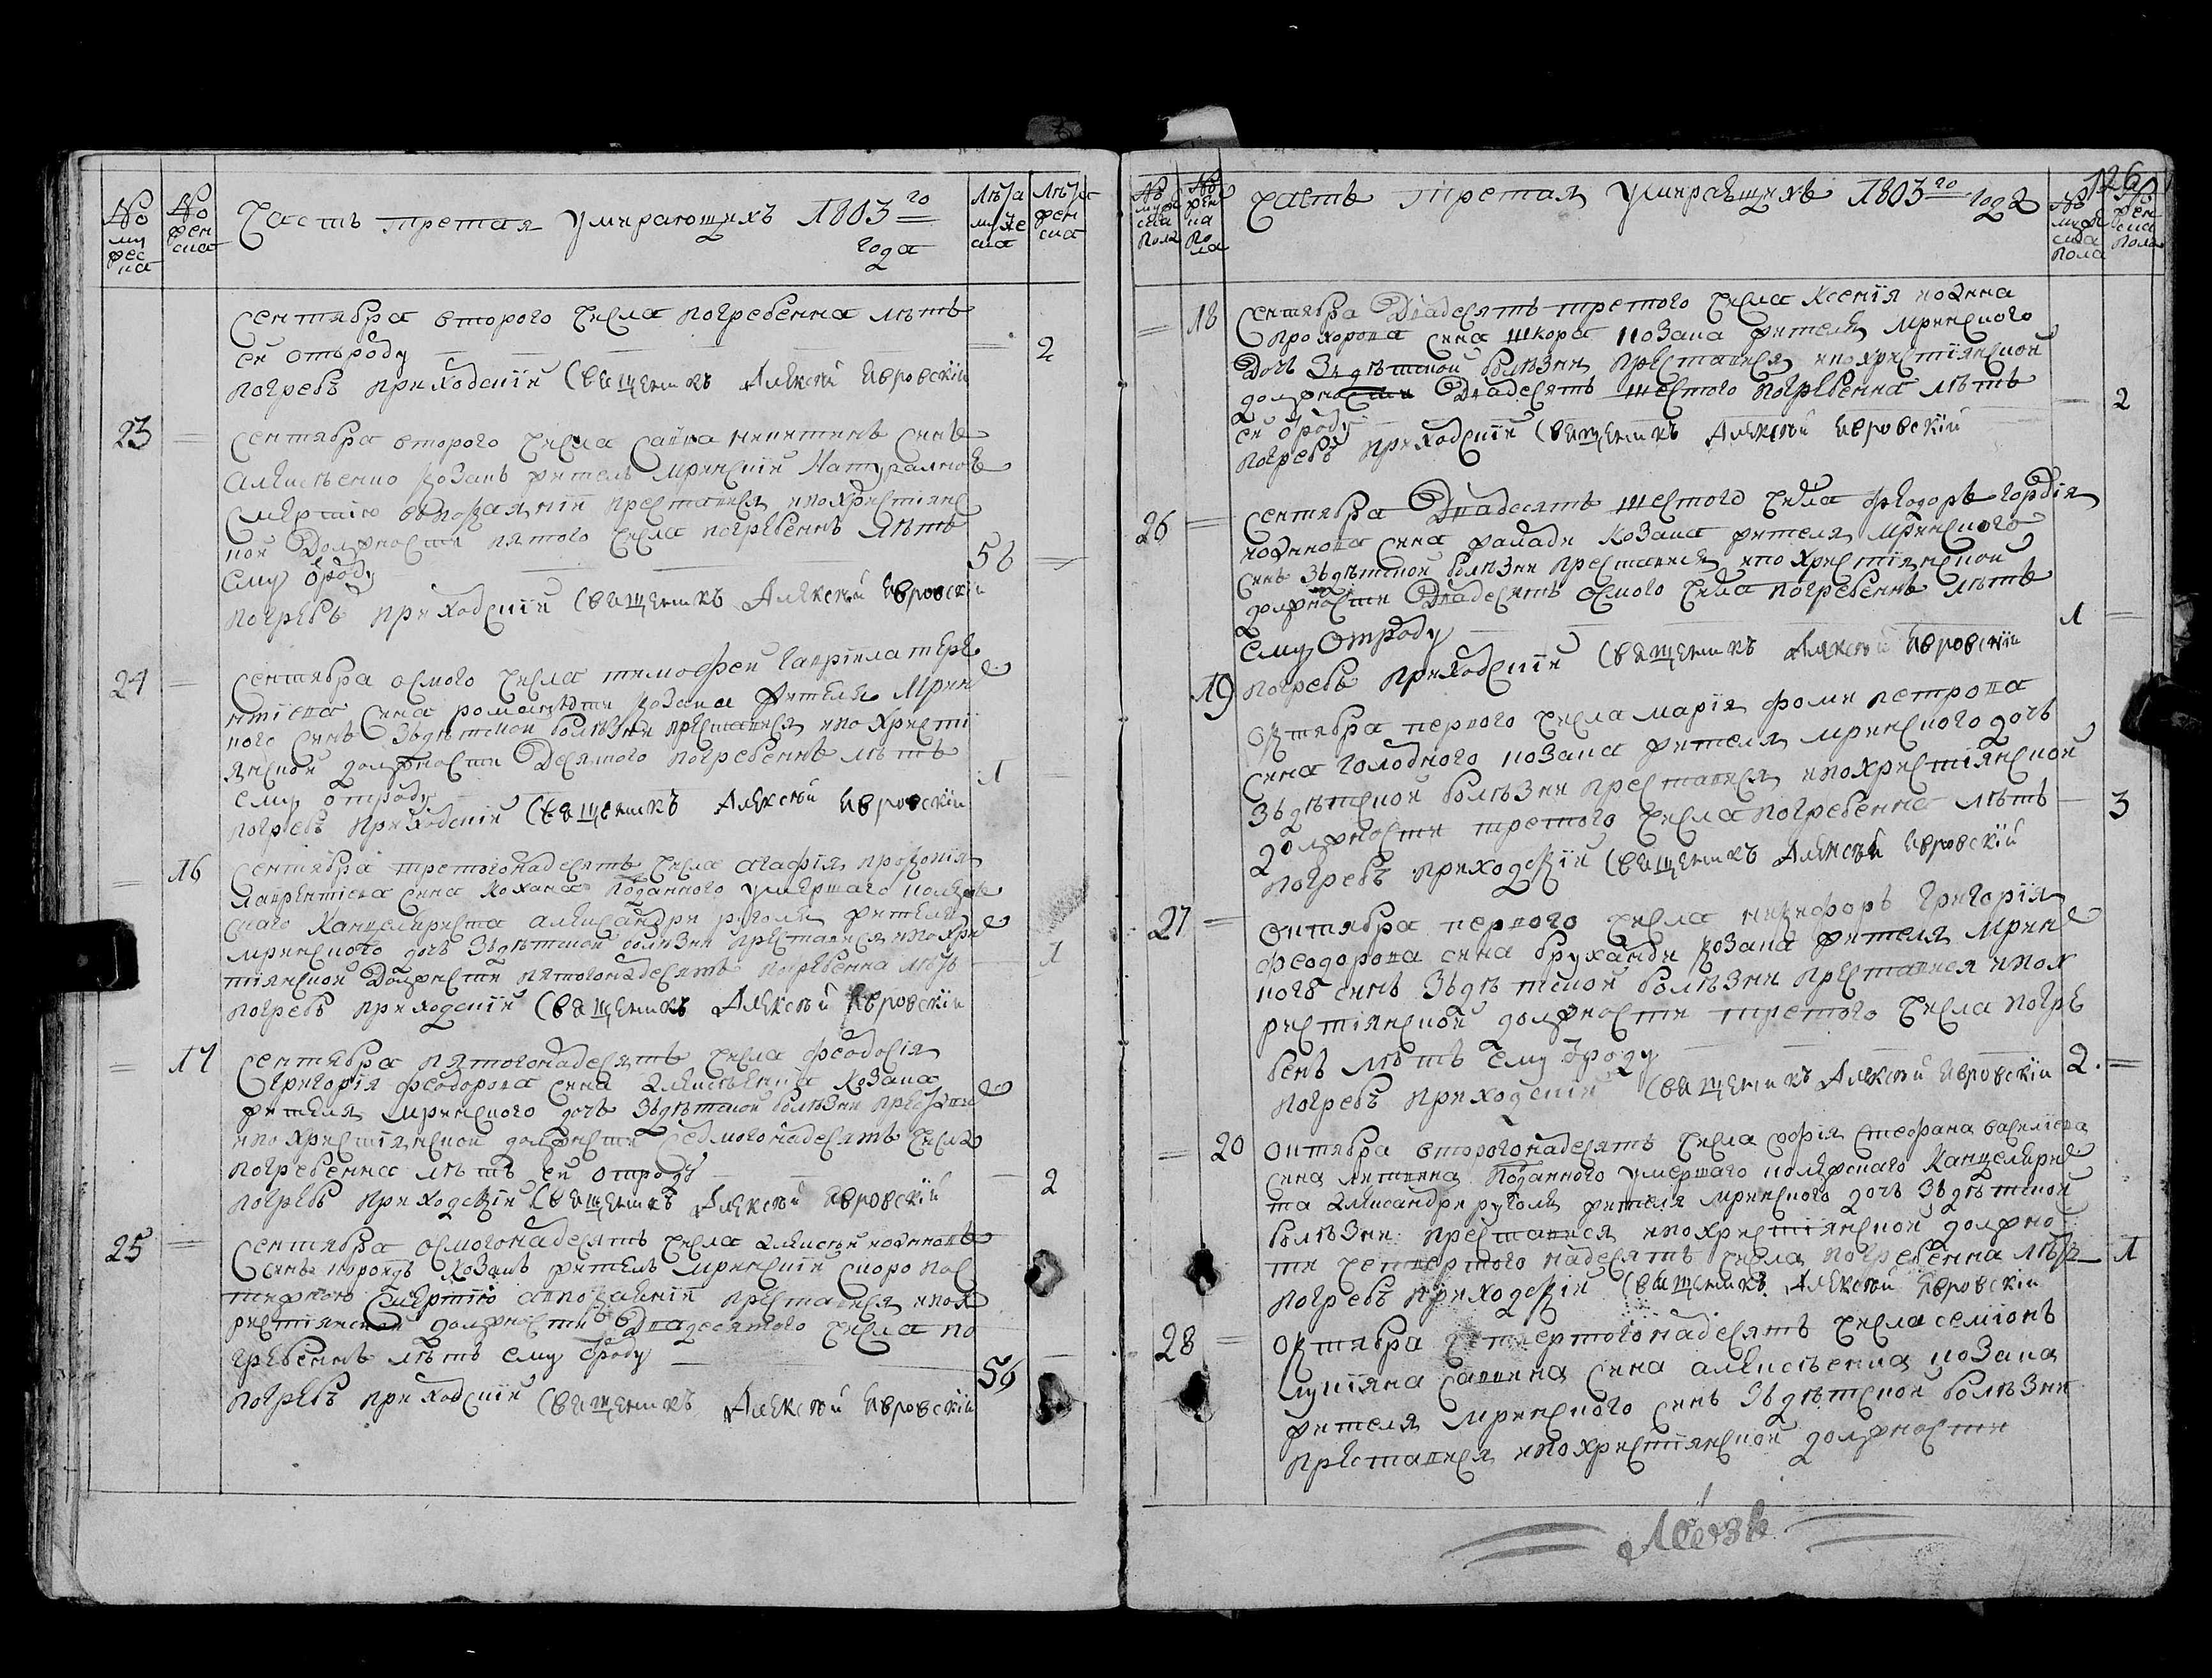 № мужеска
№ женска
Часть третая Умирающихъ 1803го года
Лѣта мужеска
Лѣта женска
Сентября второго числа погребенна лѣтъ
ей отъроду 2
погребъ приходскій Священикъ Алексѣй Явровскій
23
Сентября второго числа Савва никитинъ синъ
Алексѣенко козакъ житель мринскій Натуралною
Смертию въпокаяніи преставися ипохристиянс
кой Должности пятого числа погребеннъ Лѣтъ
Ему ѿроду 56
погребъ приходскій Священикъ Алексѣй Явровскій
24
Сентября осмого числа тимофей Гавріила тере
нтіева Сина козака жителя Мринс
кого Синъ Зъдѣтской болѣзни преставися ипо христі
янской должности Десятого погребеннъ лѣтъ
ему ѿтроду 1
погребъ приходскій Священикъ Алексѣй Явровскій
16
Сентября третогонадесять числа агафія прокопія
Лаврентіева сина Кохана поданного умершаго
Канцеляриста александри руголя жителя
мринского дочь Зъдѣтской болѣзни преставися ипохрис
тіянской Должности пятогонадесять погребенна лѣтъ 1
погребъ приходскій Священикъ Алексѣй Явровскій
17
Сентября пятогонадесять числа феодосія
Григорія феодорова сина козака
жителя мринского дочь Зъдѣтской болѣзни преставис
ипохристіянской должности Седмогонадесять числа
погребенна лѣтъ ей отроду 2
погребъ приходскій Священикъ Алексѣй Явровскій
25
Сентября осмогонадесять числа алексѣй
Синъ козакъ житель мринскій скоро пос
тижною Смертію преставися ипох
ристіянской должности Двадесятого числа по
гребеннъ лѣтъ ему ѿроду 56
погребъ приходскій Священикъ Алексѣй Явровскій
126
№ мужеска пола
№ женска пола
Часть третая Умирающихъ 1803го года
№ мужеска пола
женска пола
18
Сентября Двадесять третого числа Ксенія
Прохорова сина шкора козака жителя мринского
Дочь Зъдѣтской болѣзни преставися ипохристіянской
должности Двадесять шестого погребенна лѣтъ
ей ѿроду 2
погребъ приходскій Священикъ Алексѣй Явровскій
26
Сентября Двадесять шестого числа феодоръ гордія
сина козака жителя мринского
синъ Зъдѣтской болѣзни преставися ипо христіянской
должности Двадесять осмого числа погребеннъ лѣтъ
ему Отроду 1
погребъ приходскій Священикъ Алексѣй Явровскій
19
Октября первого числа марія фоми петрова
сина голодного козака жителя мринского дочь
Зъдѣтской болѣзни преставися ипохристіянской
должности третого числа погребенна лѣтъ 3
погребъ приходскій Священикъ Алексѣй Явровскій
27
Октября первого числа никифоръ григорія
феодорова сина бруханди козака жителя Мринс
кого синъ Зъдѣтской болѣзни преставися ипох
ристіянской должности третого числа погре
бенъ лѣтъ ему ѿроду 2
погребъ приходскій Священикъ Алексѣй Явровскій
20
Октября второгонадесять числа софія стефана василіева
сина литвина поданного умершаго Канцелярис
та александри руголя жителя мринского дочь Зъдѣтской
болѣзни преставися ипохристіянской должнос
ти четвертого надесять числа погребенна лѣтъ 1
погребъ приходскій Священикъ Алексѣй Явровскій
28
Октября четвертогонадесять числа семіонъ
лукіяна саввина сина алексѣенка козака
жителя мринского синъ Зъдѣтской болѣзни
преставися ипохристіянской должности